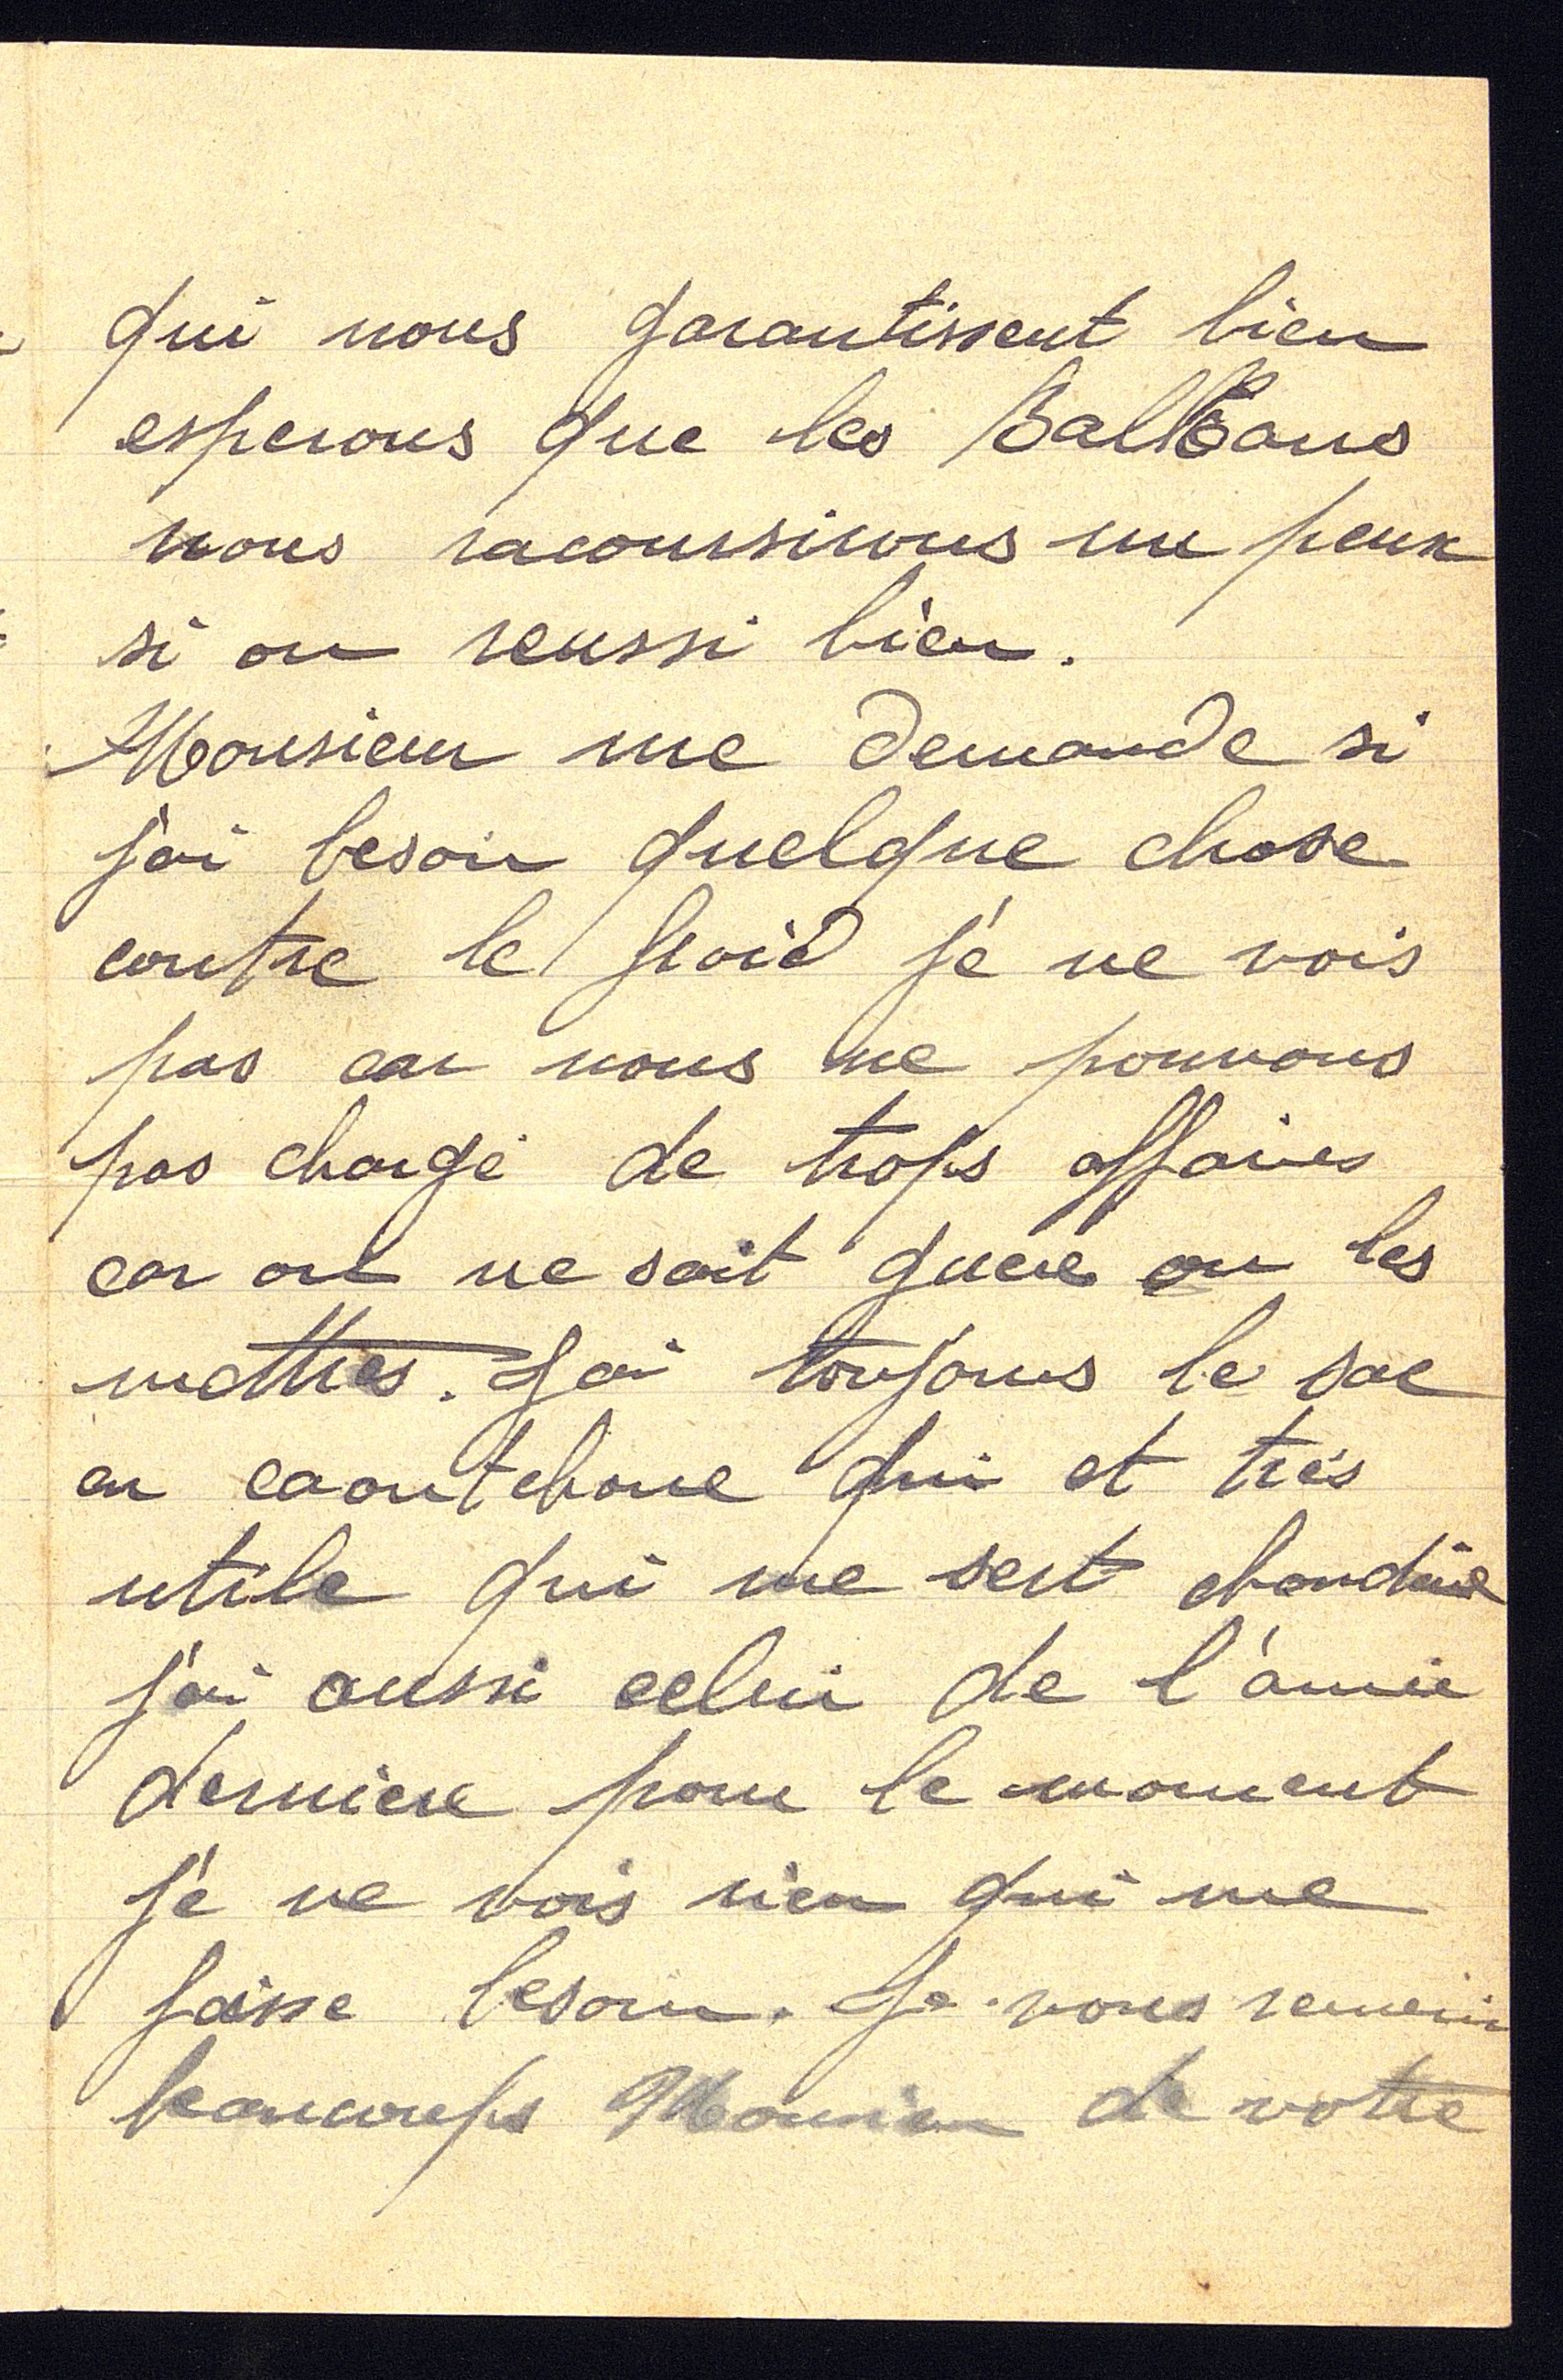 qui nous garantissent bien
esperons que les Balkans
nous racoursirons un peux
si on reussi bien.
Monsieur me demande si
j'ai besoin quelque chose
contre le froid jé ne vois
pas car nous ne pouvons
pas chargé de trops affaires
car on ne sait guere ou les
mettres. J'ai toujours le sac
en caoutchouc qui et trés
utile qui me sert
j'ai aussi celui de l'année
derniere pour le moment
jé ne vois rien qui me
faisse besoin. Je vous
beaucoups Monsieur de votre